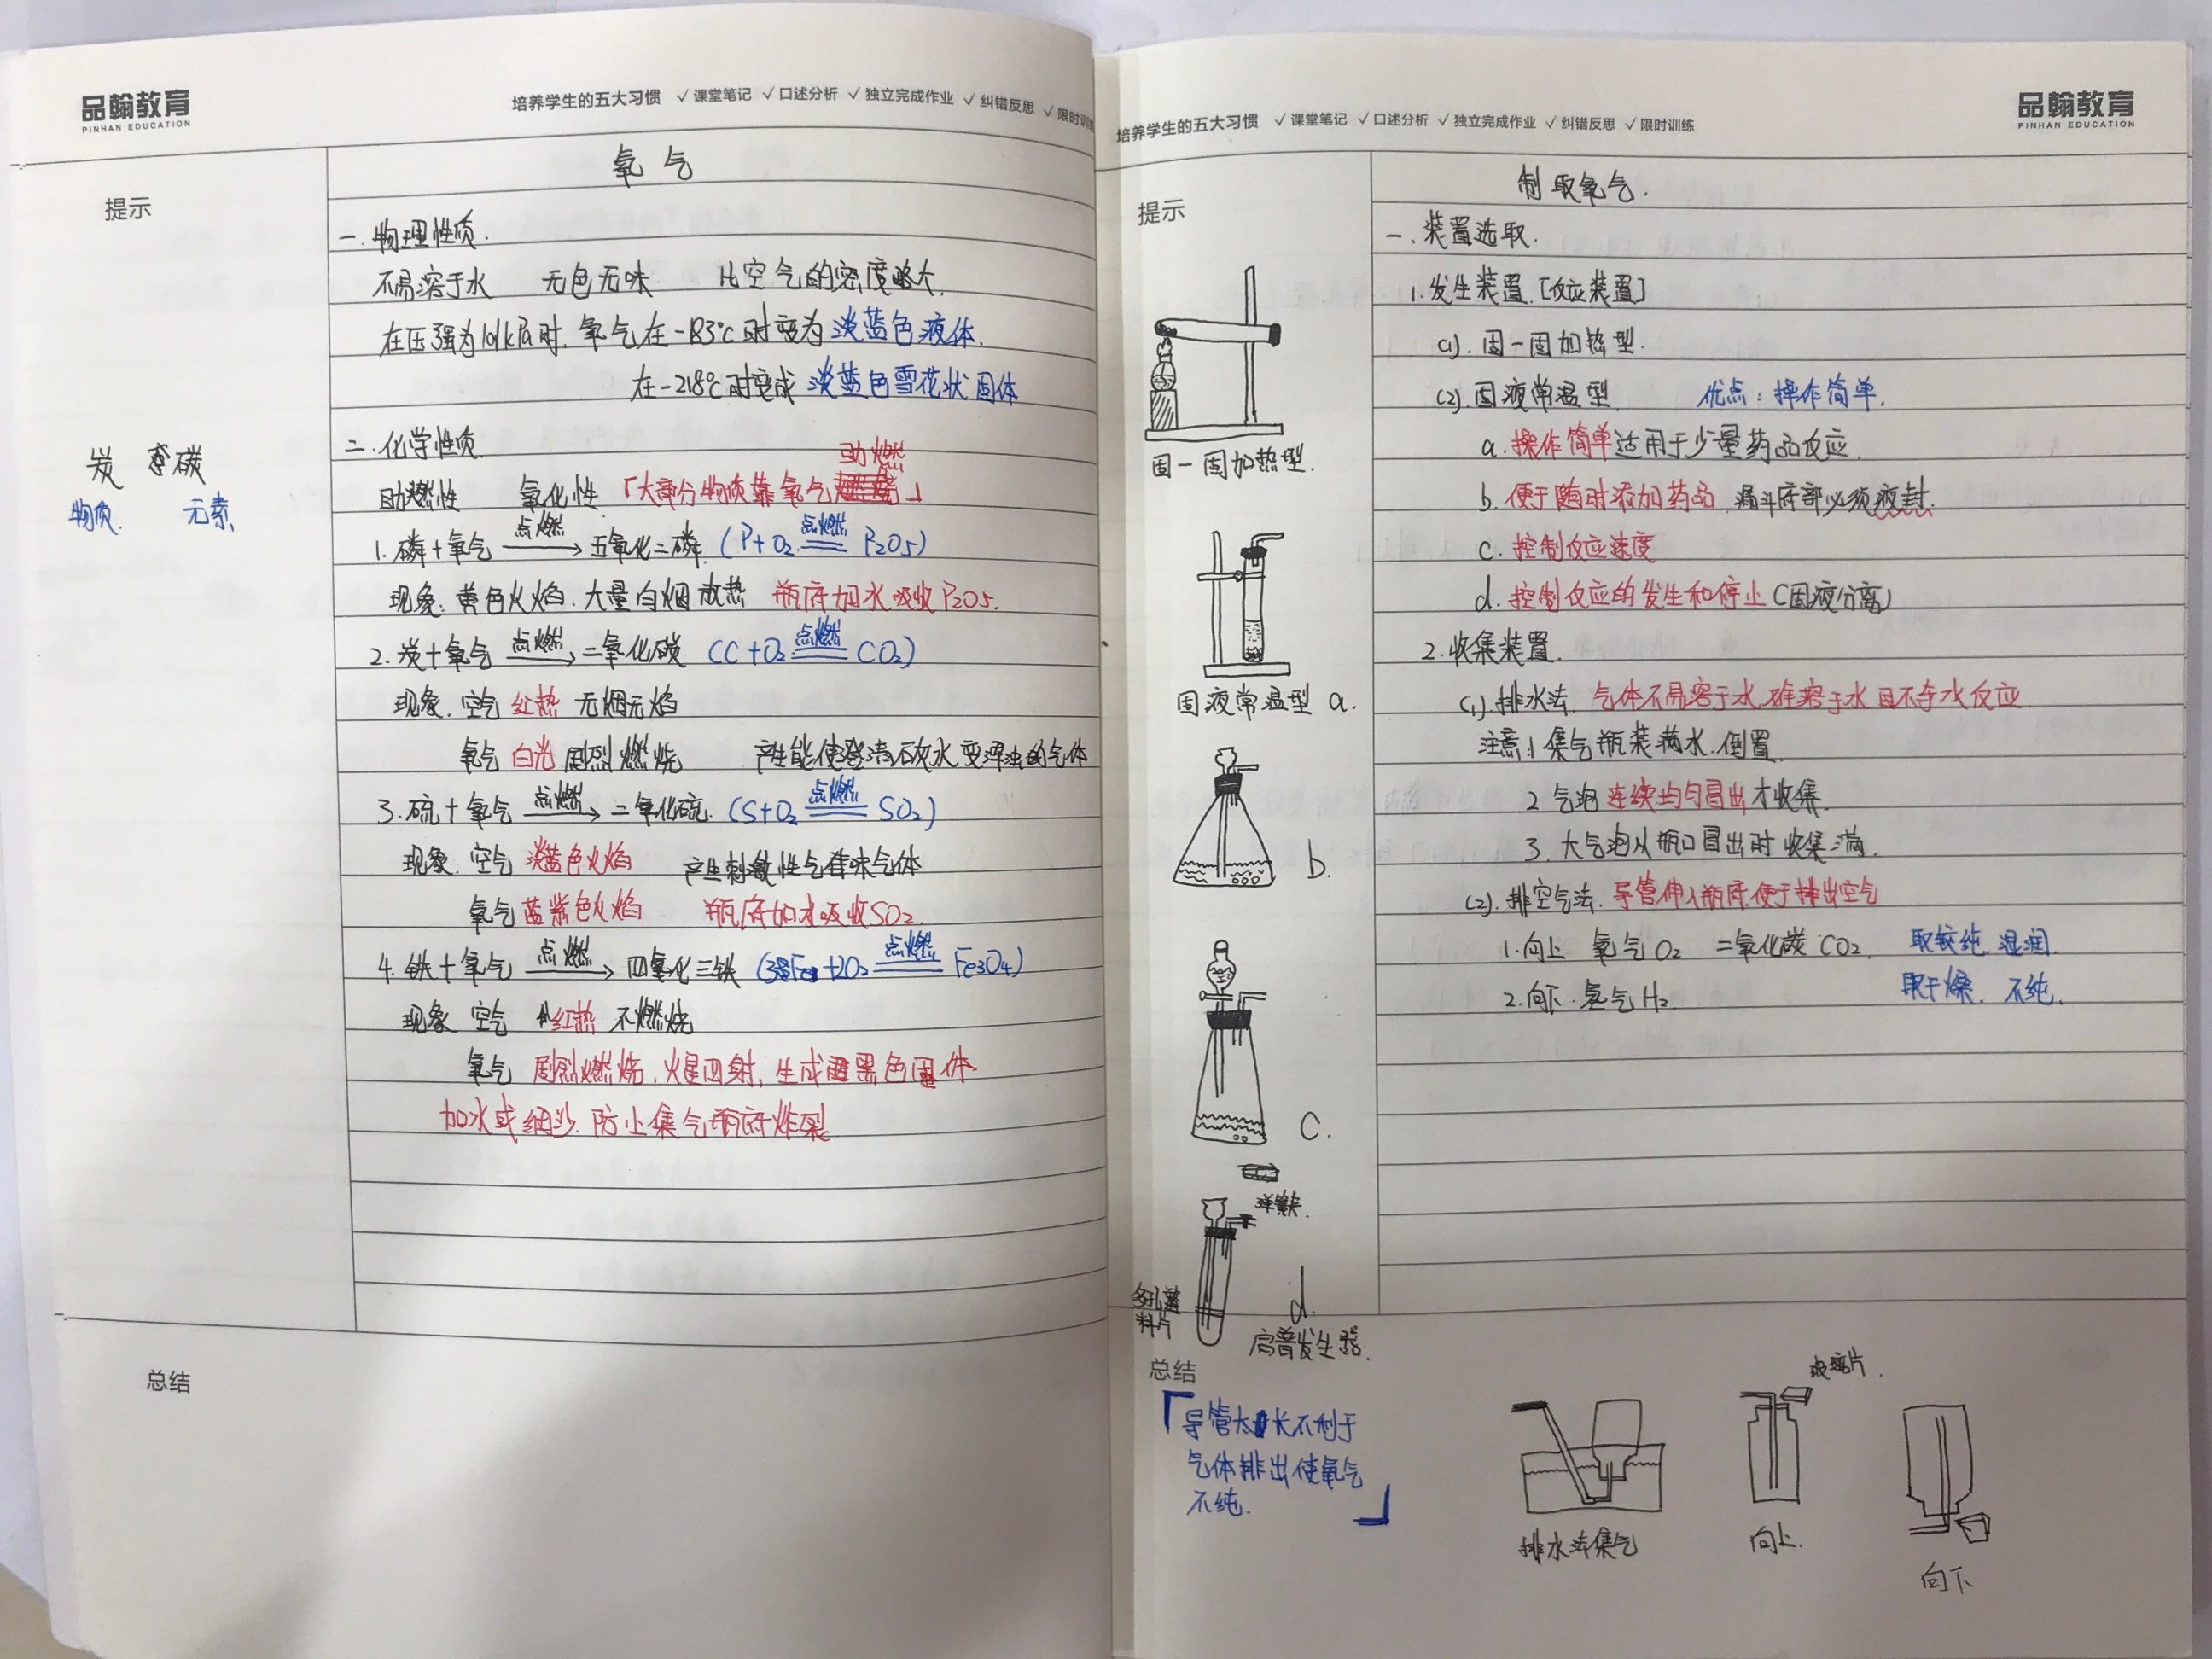 品翰教育
PINHAN EDUCATION
培养学生的五大习惯 ✓课堂笔记 ✓口述分析 ✓独立完成作业 ✓纠错反思 ✓限时训练
提示
氧气
一.物理性质.
不易溶于水 无色无味 比空气的密度略大.
在压强为101kPa时.氧气在-183℃时变为淡蓝色液体.
在-218℃时变成淡蓝色雪花状固体
二.化学性质.
炭 碳
物质. 元素.
助燃
助燃性 氧化性「大部分物质靠氧气」
1.磷+氧气 点燃→ 五氧化二磷.(P+O₂ 点燃══ P₂O₅)
现象:黄色火焰.大量白烟 放热 瓶底加水吸收P₂O₅.
2.炭+氧气 点燃→ 二氧化碳 (C+O₂ 点燃══ CO₂)
现象.空气 红热 无烟无焰
氧气 白光 剧烈燃烧 产生能使澄清石灰水变浑浊的气体
3.硫+氧气 点燃→ 二氧化硫.(S+O₂ 点燃══ SO₂)
现象.空气 淡蓝色火焰 产生刺激性气味气体
氧气 蓝紫色火焰 瓶底加水吸收SO₂.
4.铁+氧气 点燃→ 四氧化三铁 (3Fe+2O₂ 点燃══ Fe₃O₄)
现象 空气 红热 不燃烧
氧气 剧烈燃烧.火星四射.生成黑色固体
加水或细沙.防止集气瓶底炸裂
总结
培养学生的五大习惯 ✓课堂笔记 ✓口述分析 ✓独立完成作业 ✓纠错反思 ✓限时训练
品翰教育
PINHAN EDUCATION
提示
制取氧气.
一.装置选取.
1.发生装置.[反应装置]
(1).固-固加热型.
(2).固液常温型. 优点:操作简单.
a.操作简单适用于少量药品反应.
b.便于随时添加药品.漏斗底部必须液封.
c.控制反应速度
d.控制反应的发生和停止(固液分离)
2.收集装置.
(1).排水法.气体不易溶于水.难溶于水且不与水反应
注意:1集气瓶装满水.倒置.
2气泡连续均匀冒出才收集.
3.大气泡从瓶口冒出时收集满.
(2).排空气法.导管伸入瓶底.便于排出空气
1.向上 氧气O₂ 二氧化碳CO₂. 取较纯.湿润.
2.向下.氢气H₂. 取干燥.不纯.
固-固加热型.
固液常温型 a.
b.
c.
弹簧夹.
多孔塑
料片
d.
启普发生器.
总结
「导管太长不利于
气体排出使氧气
不纯.」
排水法集气
玻璃片.
向上.
向下